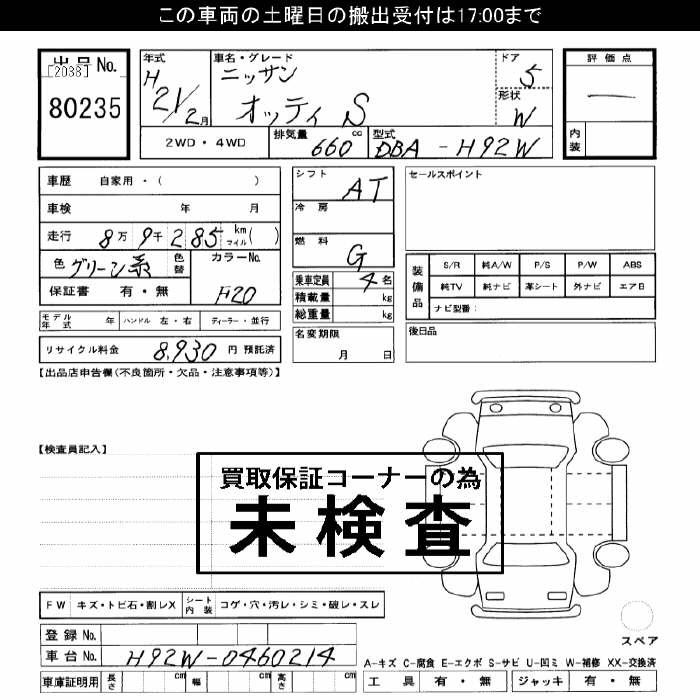 この車両の土曜日の搬出受付は17:00まで
出品No.
[2038]
80235
年式
H 21/2月
車名・グレード
ニッサン
オッティ S
ドア
5
形状
W
評価点
―
内装
2WD・4WD
排気量 660 cc
型式 DBA-H92W
車歴 自家用・( )
車検 年 月
走行 8万 9千 285 km マイル ( )
色 グリーン系
色替
カラーNo.
H20
保証書 有・無
モデル年式 年 ハンドル 左・右 ディーラー・並行
リサイクル料金 8,930 円 預託済
シフト AT
冷房
燃料 G
乗車定員 4 名
積載量 kg
総重量 kg
名変期限
月 日
セールスポイント
装備品
S/R 純A/W P/S P/W ABS
純TV 純ナビ 革シート 外ナビ エアB
ナビ型番:
後日品
【出品店申告欄(不良箇所・欠品・注意事項等)】
【検査員記入】
買取保証コーナーの為
未検査
FW キズ・トビ石・割レX シート内装 コゲ・穴・汚レ・シミ・破レ・スレ
登録No.
車台No. H92W-0460214
車庫証明用 長さ cm 幅 cm 高さ cm
スペア
A-キズ C-腐食 E-エクボ S-サビ U-凹ミ W-補修 XX-交換済
工具 有・無 ジャッキ 有・無